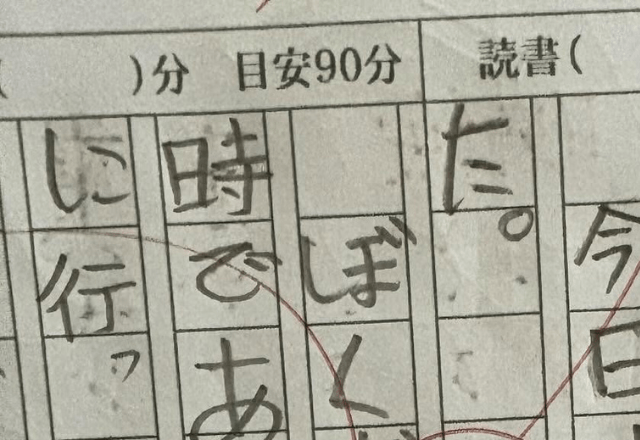 )分 目安90分 読書(
今日
た。
ぼく
時であ
に行っ